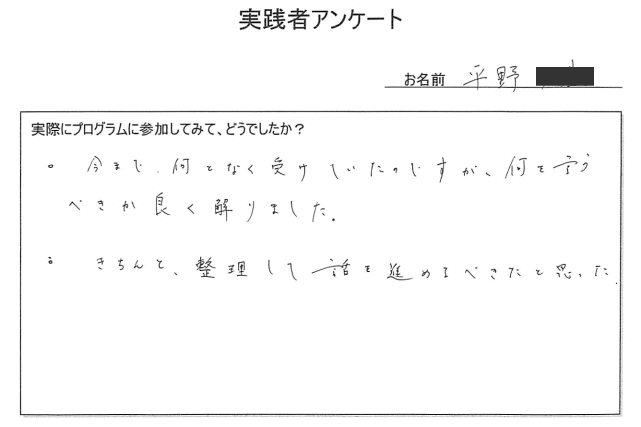 実践者アンケート
お名前 平野
実際にプログラムに参加してみて、どうでしたか？
。今まで、何となく受けていたのですが、何を言う
べきか良く解りました。
。きちんと、整理して話を進めるべきだと思った.